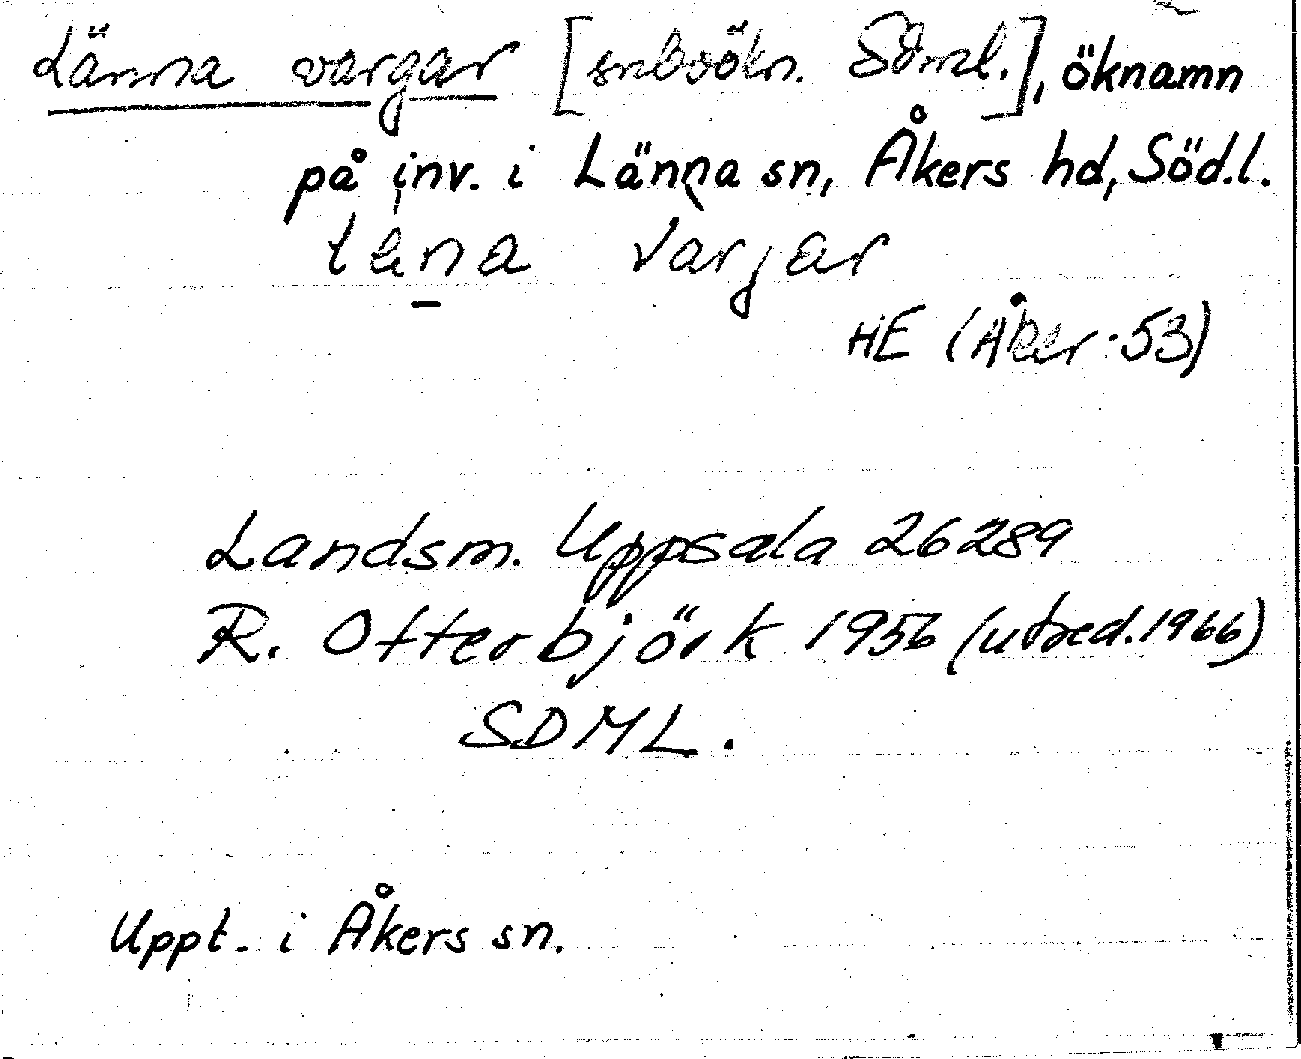 Länna vargar [snbsökn. Sdml.], öknamn
på inv. i Länna sn, Åkers hd, Söd.l.
läna varjar
HE (Åker 53)
Landsm. Uppsala 26289
R. Otterbjörk 1956 (utred. 1966)
SDML.
Uppt. i Åkers sn.